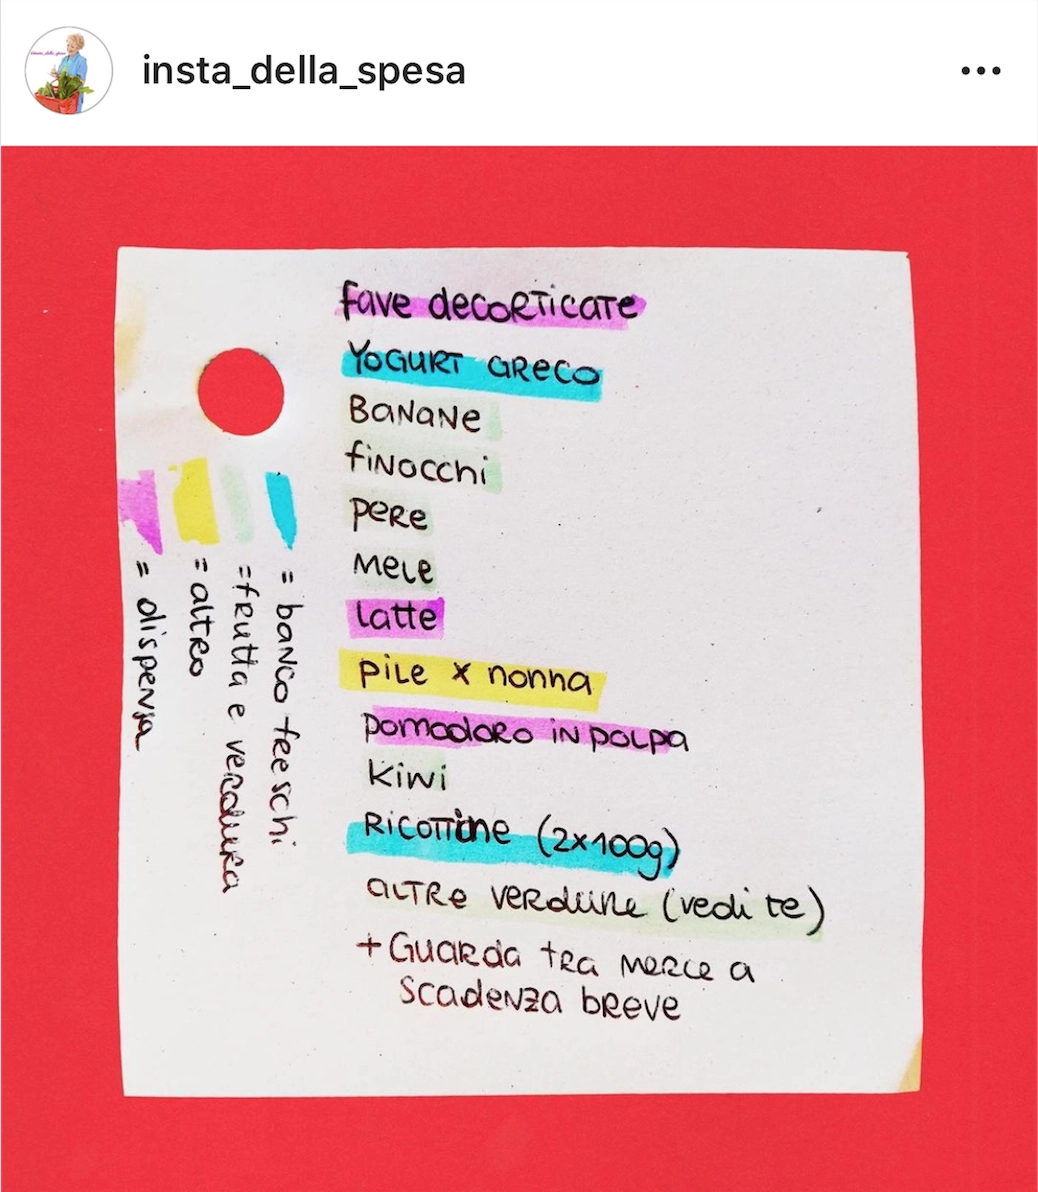 insta_della_spesa
fave decorticate
YOGURT GRECO
BANANE
finocchi
PERE
MELE
latte
PILE x nonna
POMODORO IN POLPA
KIWI
RICOTTINE (2x100g)
ALTRE VERDURE (vedi te)
+ GUARDA TRA MERCE A
SCADENZA BREVE
= banco freschi
= frutta e verdura
= altro
= dispensa